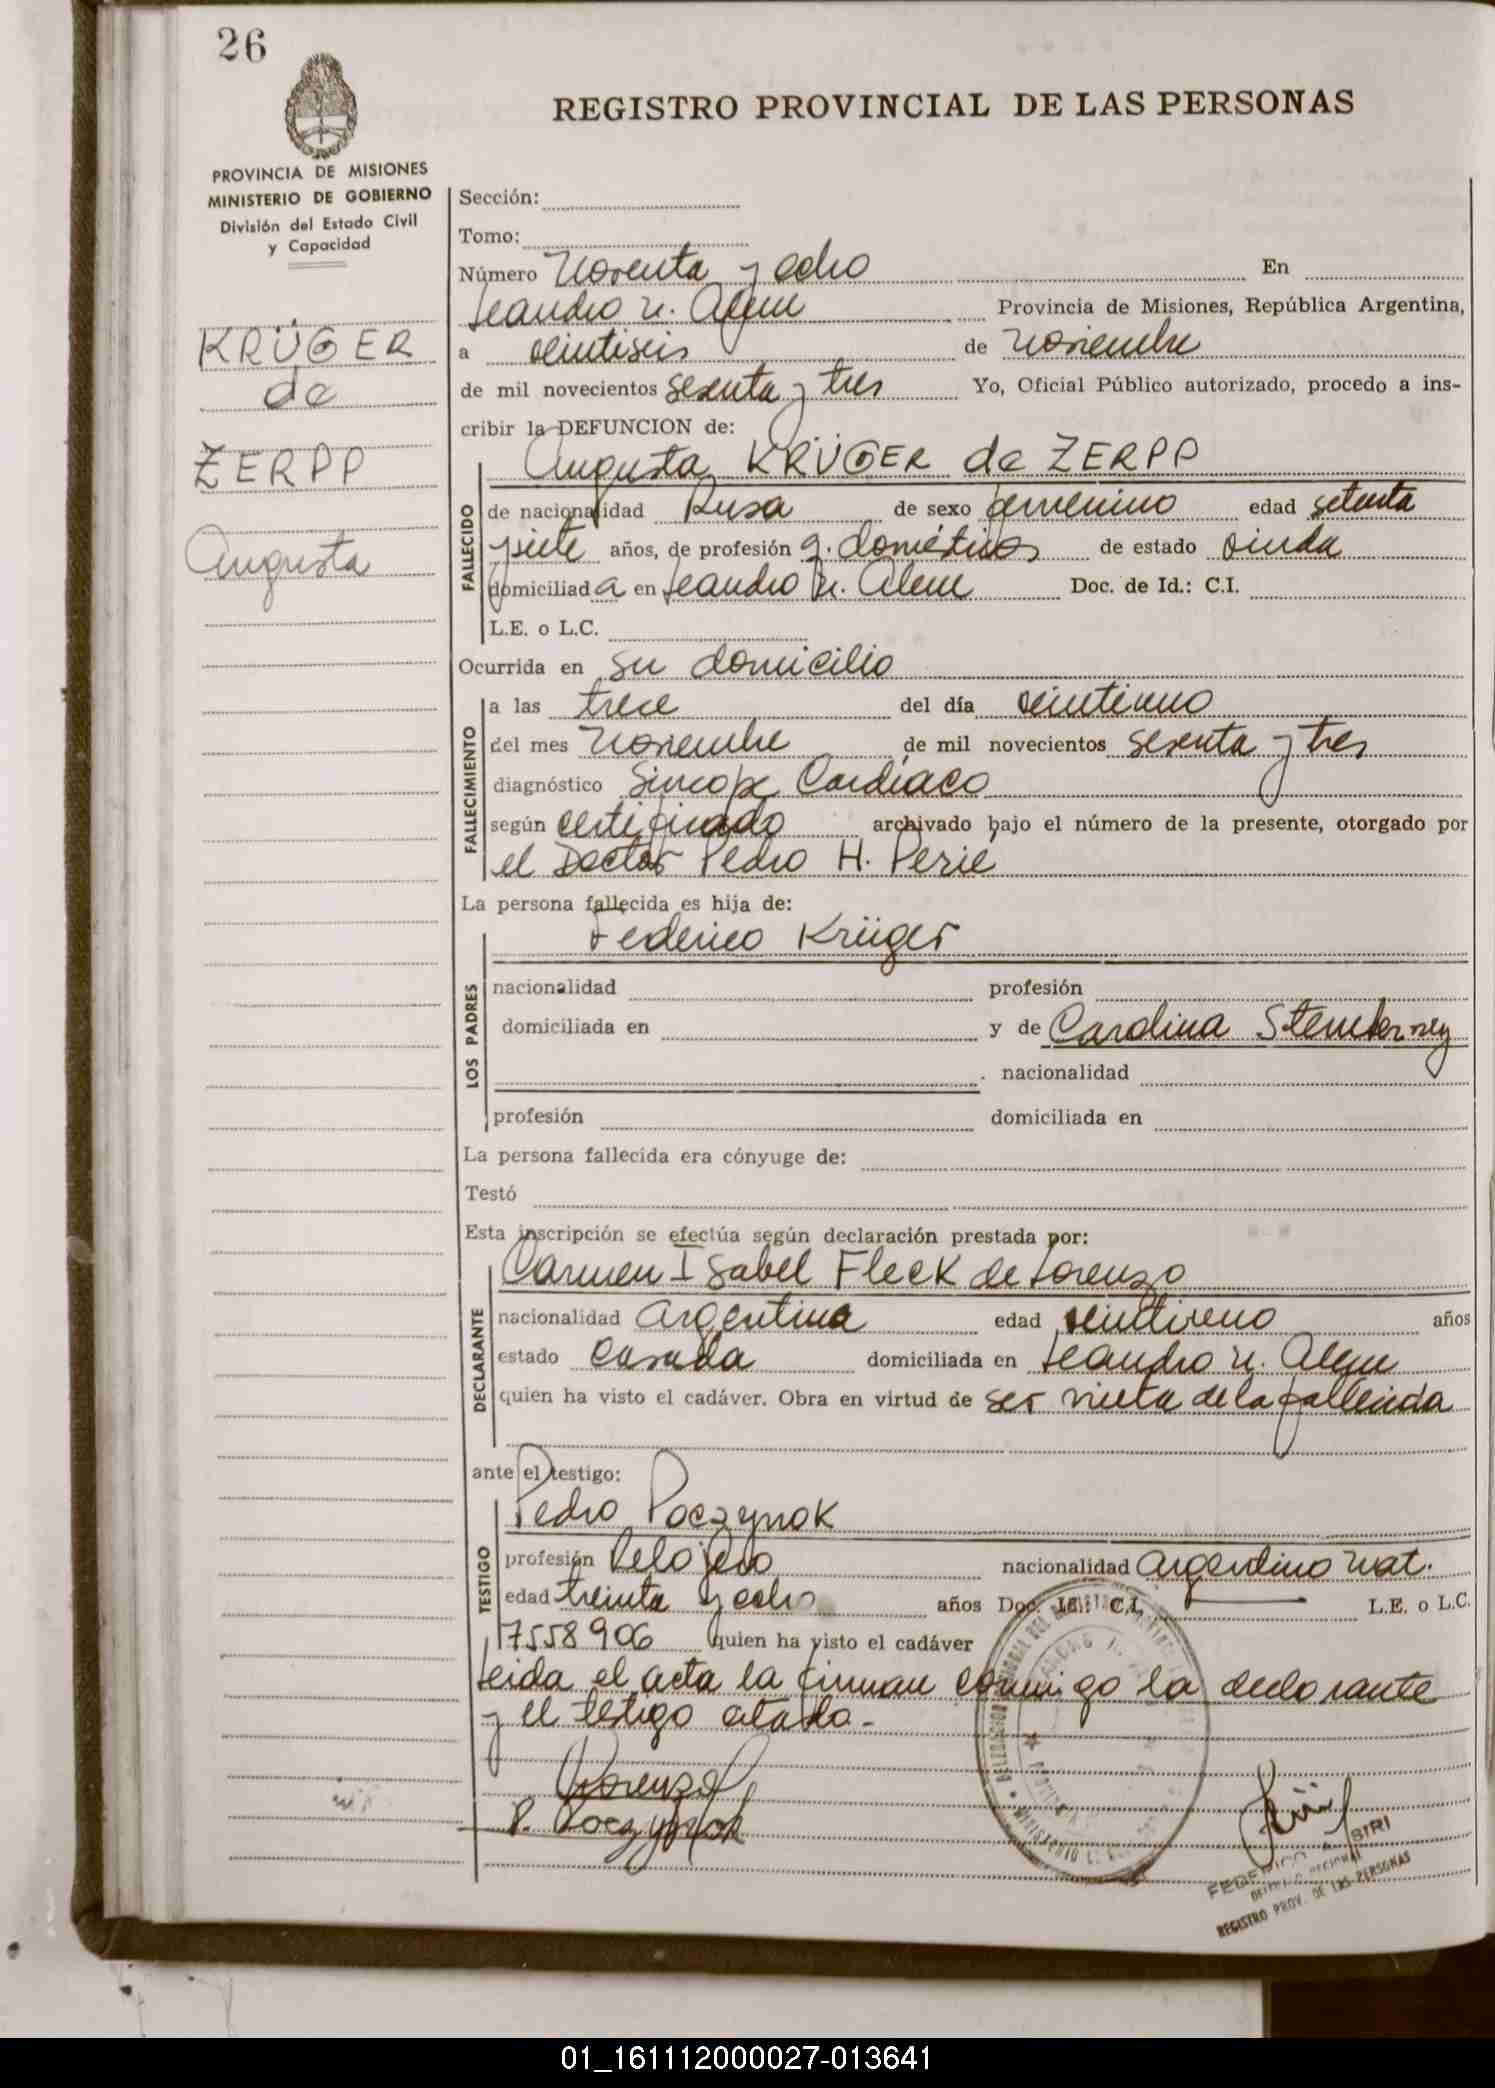 26
REGISTRO PROVINCIAL DE LAS PERSONAS
PROVINCIA DE MISIONES
MINISTERIO DE GOBIERNO
División del Estado Civil
y Capacidad
KRÜGER
de
ZERPP
Augusta
Sección:
Tomo:
Número Noventa y ocho En
Leandro N. Alem Provincia de Misiones, República Argentina,
a veintiseis de Noviembre
de mil novecientos sesenta y tres Yo, Oficial Público autorizado, procedo a ins-
cribir la DEFUNCION de:
Augusta KRÜGER de ZERPP
FALLECIDO
de nacionalidad Rusa de sexo femenino edad setenta
y siete años, de profesión q. domésticos de estado viuda
domiciliada en Leandro N. Alem Doc. de Id.: C.I.
L.E. o L.C.
Ocurrida en su domicilio
FALLECIMIENTO
a las trece del día veintiuno
del mes Noviembre de mil novecientos sesenta y tres
diagnóstico Sincope Cardíaco
según certificado archivado bajo el número de la presente, otorgado por
el Doctor Pedro H. Perié
La persona fallecida es hija de:
Federico Krüger
LOS PADRES
nacionalidad profesión
domiciliada en y de Carolina
nacionalidad
profesión domiciliada en
La persona fallecida era cónyuge de:
Testó
Esta inscripción se efectúa según declaración prestada por:
Carmen Isabel Fleck de Lorenzo
DECLARANTE
nacionalidad Argentina edad veintiuno años
estado Casada domiciliada en Leandro N. Alem
quien ha visto el cadáver. Obra en virtud de ser nieta de la fallecida
ante el testigo:
Pedro Poczynok
TESTIGO
profesión Relojero nacionalidad Argentino nat.
edad treinta y ocho años Doc. Id.: C.I. L.E. o L.C.
7558906 quien ha visto el cadáver
Leida el acta la firman conmigo la declarante
y el testigo citado.-
Lorenzo
P. Poczynok
FEDERICO A. SIRI
REGISTRO PROV. DE LAS PERSONAS
01_161112000027-013641